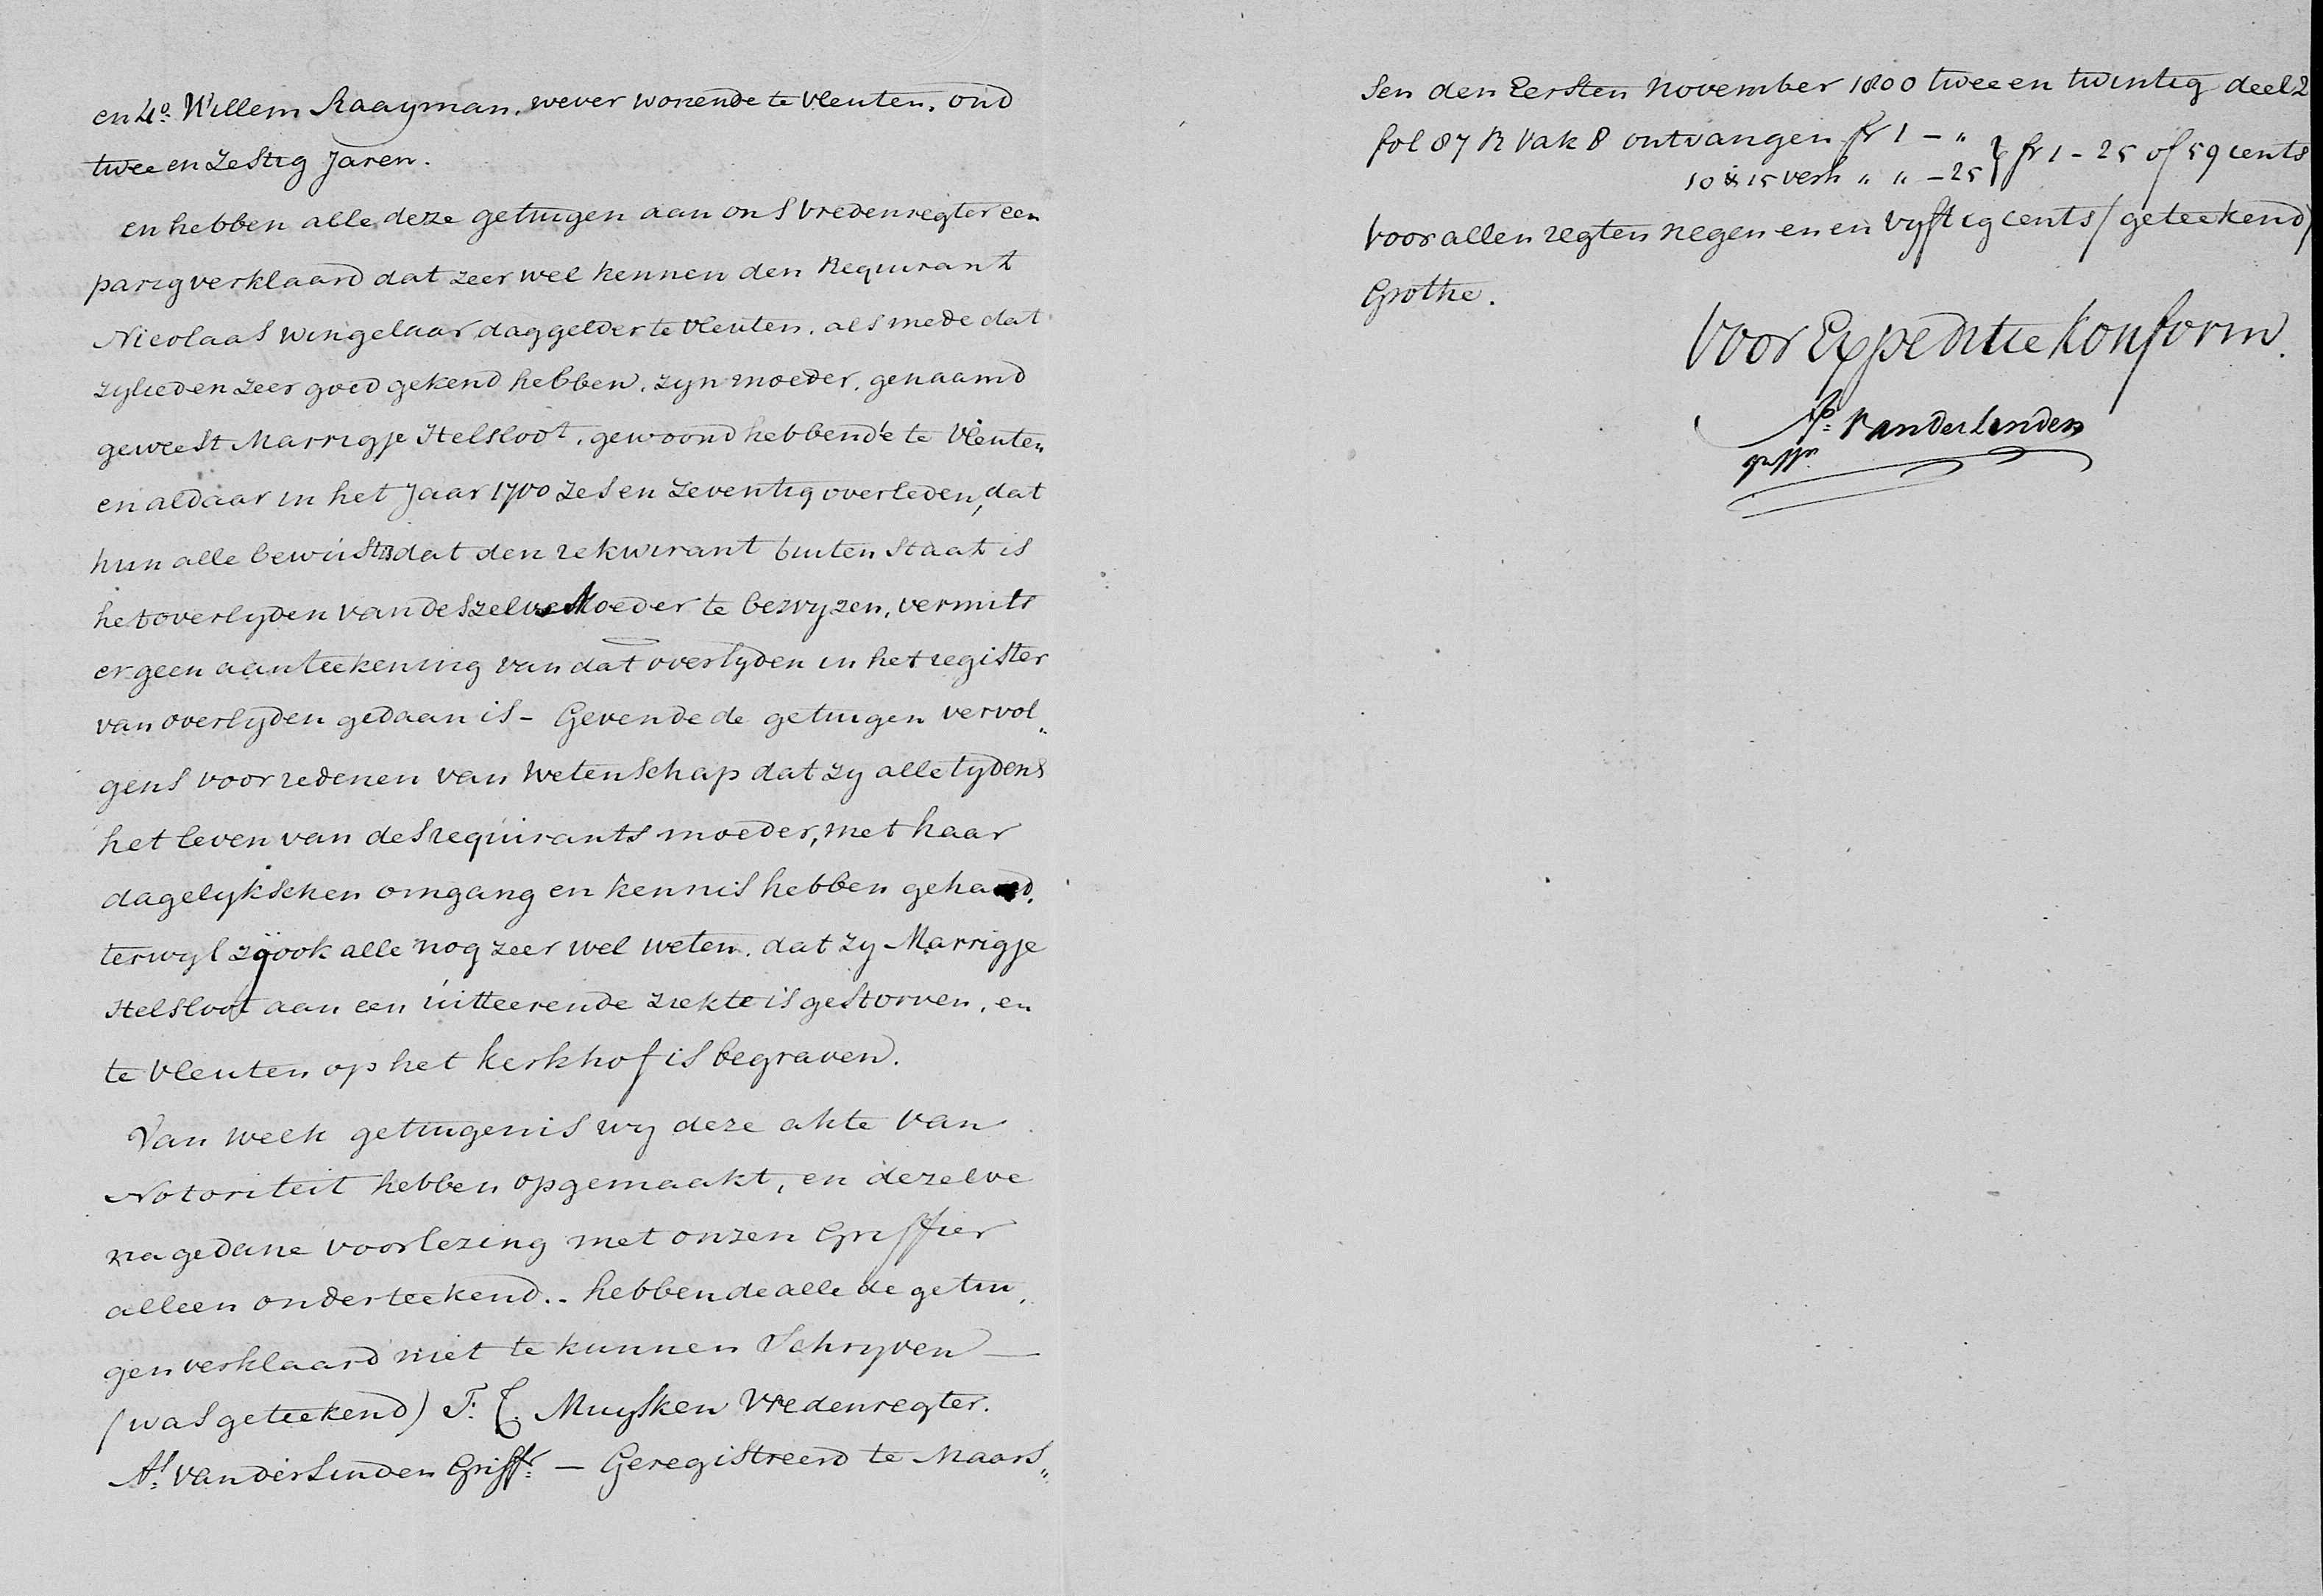 en 4o. Willem Raayman. wever wonende te Vleuten. oud
twee en zestig Jaren.
en hebben alle deze getuigen aan ons vredenregter een
parig verklaard dat zeer wel kennen den Requirant
Nicolaas Wingelaar daggelder te Vleuten. als mede dat
zylieden zeer goed gekend hebben. zyn moeder. genaamd
geweest Marrigje Helsloot. gewoond hebbende te Vleuten
en aldaar in het Jaar 1700 zes en zeventig overleden, dat
hun alle bewust is dat den rekwirant buiten staat is
het overlyden van deszelve Moeder te bewyzen, vermits
er geen aanteekening van dat overlyden in het register
van overlyden gedaan is - Gevende de getuigen vervol„
gens voor redenen van Wetenschap dat zy alle tydens
het leven van des requirants moeder, met haar
dagelykschen omgang en kennis hebben gehad.
terwyl zy ook alle nog zeer wel weten. dat zy Marrigje
Helsloot aan een uitteerende ziekte is gestorven. en
te Vleuten op het kerkhof is begraven.
Van welk getuigenis wy deze akte van
Notoriteit hebben opgemaakt, en dezelve
na gedane voorlezing met onzen Griffier
alleen onderteekend.- hebbende alle de getui„
gen verklaard niet te kunnen Schryven —
(was geteekend) F. C. Muysken Vredenregter.
As. van der Linden Griffr. — Geregistreerd te Maars„
sen den Eersten November 1800 twee en twintig deel 2
fol 87 R Vak 8 ontvangen fr 1 - „ } fr 1 - 25 of 59 cents
10 & 15 verh „ „ - 25
Voor allen regten negen en en vyftig cents (geteekend)
Grothe.
Voor Expeditie Konform.
As. van der Linden
griffr.